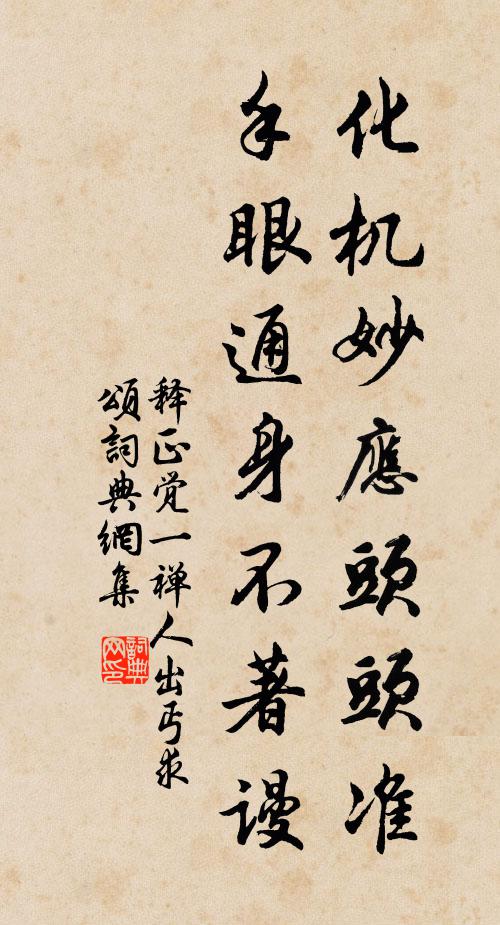 化机妙應頭頭准
手眼通身不著谩
释正觉一禅人出丐求
頌詞典網集
詞典网印